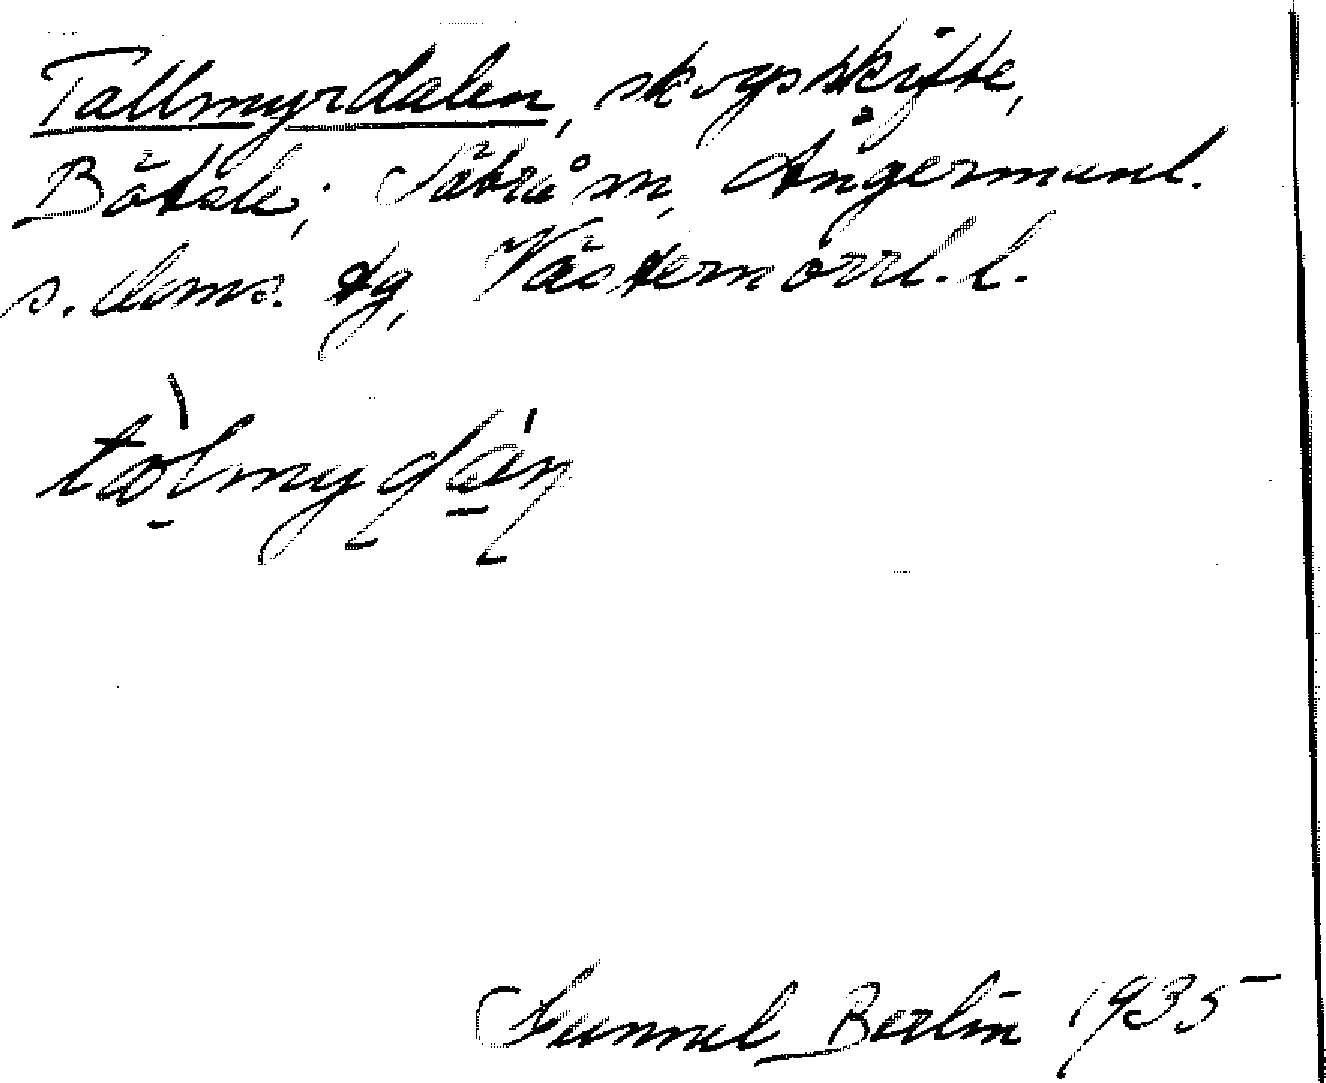 Tallmyrdalen, skogsskifte,
Bätsle; Säbrå sn, Ångermanl.
s. doms. tg, Västernorrl. l.
Gunnel Berlin 1935